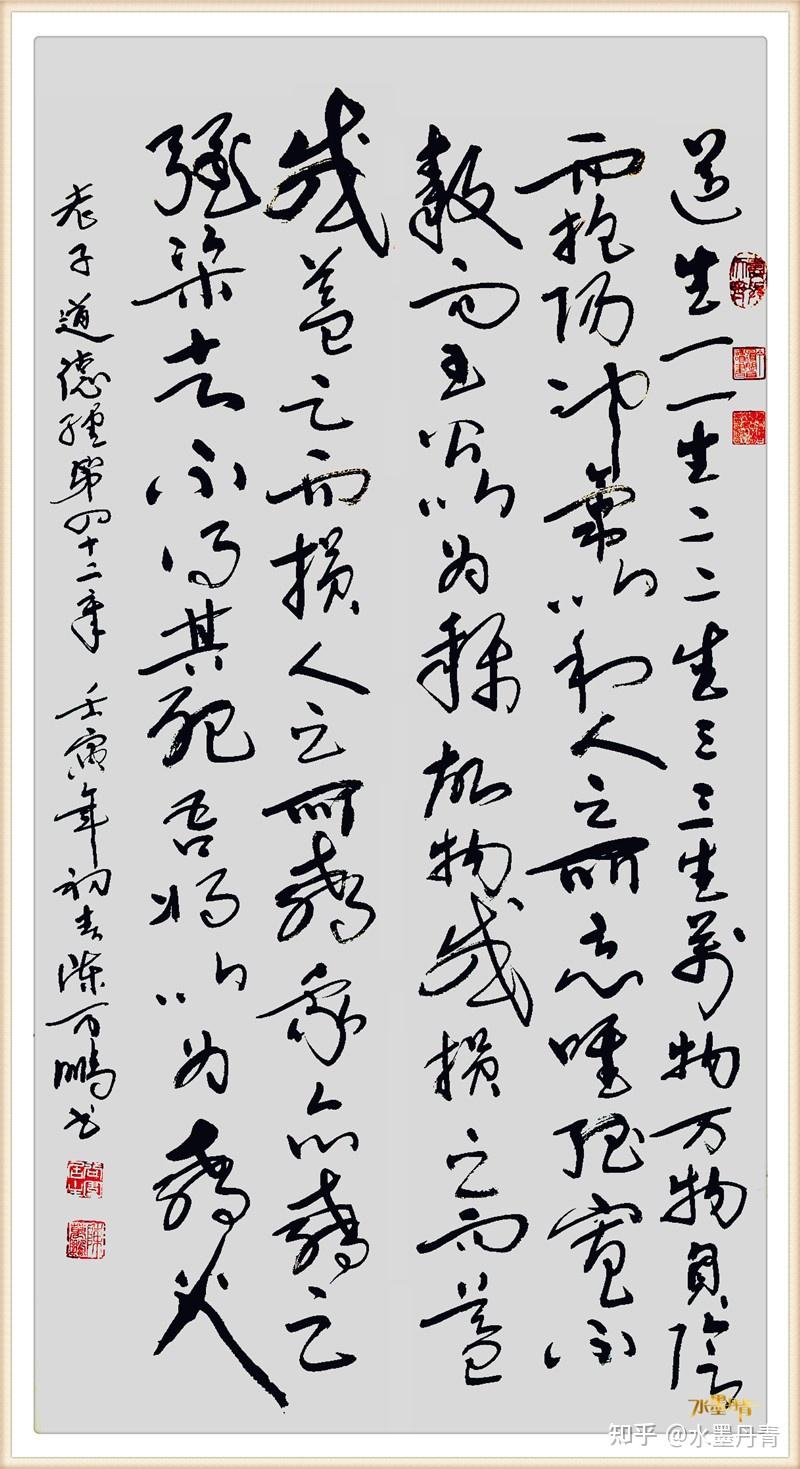 道生一一生二二生三三生萬物万物負陰
而抱阳冲氣以和人之所恶唯孤寡不
穀而王公以为稱故物或损之而益
或益之而损人之所教我亦教之
强梁者不得其死吾将以为教父
老子道德經第四十二章 壬寅年初春陈万鹏书
水墨丹青
知乎 @水墨丹青